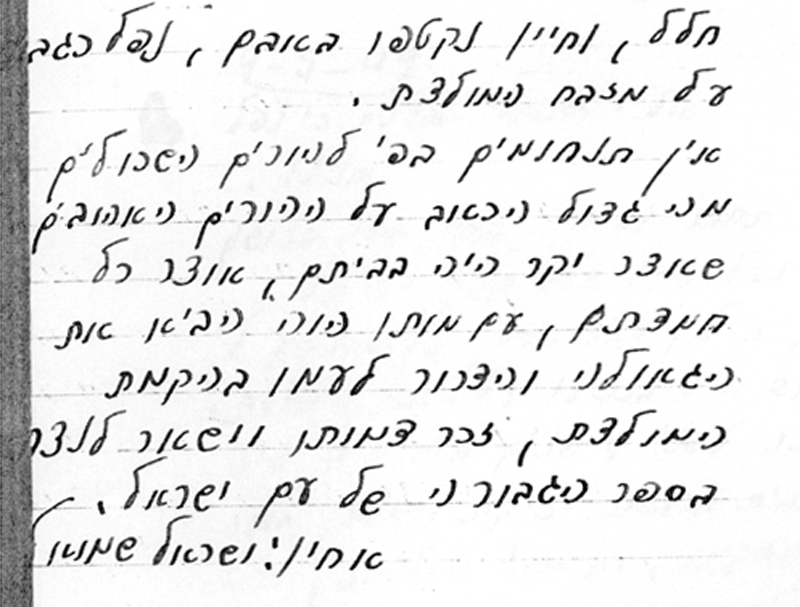 חלל, וחייו נקטפו באבם, נפל כגב
על מזבח המולדת.
אין תנחומים בפי להורים השכולים
מה גדול הכאוב על ההורים האהובים
שאוצר יקר היה בביתם, אוצר כל
חמדתם, עם מותו הוה הביא את
הגאולה והדרור לעמו בהקמת
המולדת, זכר דמותו ישאר לנצח
בספר הגבורה של עם ישראל.
אחיו: ישראל שמואל